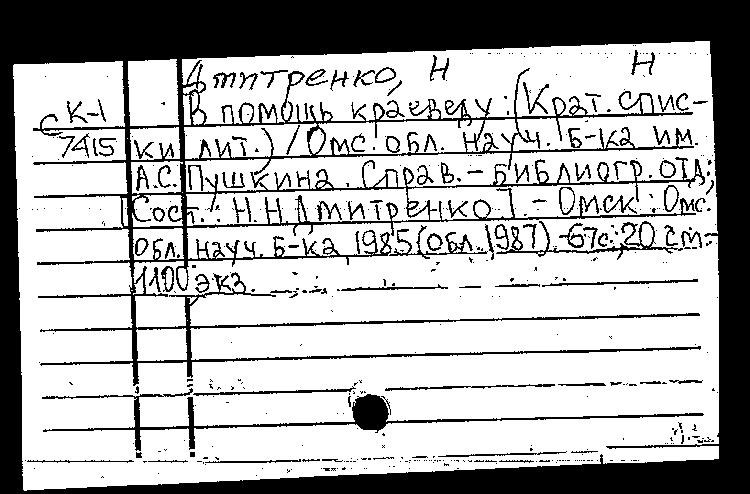 Дмитренко, Н Н
С К-1 В помощь краеведу: (Крат. спис-
7415 ки лит.) / Омс. обл. науч. б-ка им.
А.С. Пушкина. Справ. - библиогр. отд;
[Сост.: Н.Н. Дмитренко]. - Омск: Омс.
обл. науч. б-ка, 1985 (обл. 1987). - 67с; 20 см -
1100 экз.